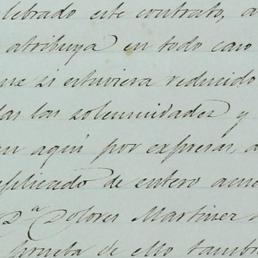 lebrado este contrato, a
atribuya en todo caso
si estuviera reducido
las solemnidades y
aquí por expresas, a
plicado de entero acue
D.ª Dolores Martinez
prueba de ello tambi